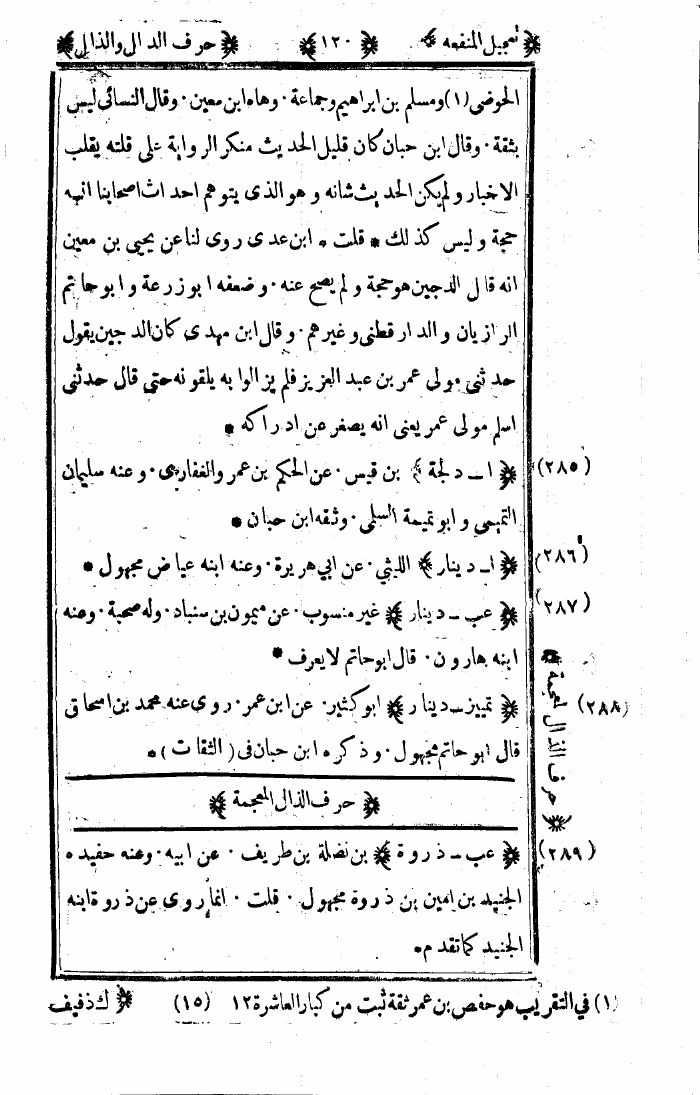 ﴿ تعجيل المنفعه ﴾ ﴿ ١٢٠ ﴾ ﴿ حرف الدال والذال ﴾
الحوضى (١) ومسلم بن ابراهيم وجماعة ٠ وهاه ابن معين ٠ وقال النسائى ليس
بثقة ٠ وقال ابن حبان كان قليل الحديث منكر الرواية على قلته يقلب
الاخبار ولم يكن الحديث شانه وهو الذى يتوهم احداث اصحابنا انه
حجة وليس كذلك * قلت * ابن عدى روى لنا عن يحيى بن معين
انه قال الدجين هو حجة ولم يصح عنه ٠ وضعفه ابو زرعة وابو حاتم
الرازيان والدارقطنى وغيرهم ٠ وقال ابن مهدى كان الدجين يقول
حدثنى مولى عمر بن عبد العزيز فلم يزالوا به يلقونه حتى قال حدثنى
اسلم مولى عمر يعنى انه يصغر عن ادراكه *
(٢٨٥) ﴿ ا ــ دلجة ﴾ بن قيس ٠ عن الحكم بن عمر والغفارى ٠ وعنه سليمان
التيمى وابو تميمة السلمى ٠ وثقه ابن حبان *
(٢٨٦) ﴿ ا ــ دينار ﴾ الليثى ٠ عن ابى هريرة ٠ وعنه ابنه عياض مجهول *
(٢٨٧) ﴿ عب ــ دينار ﴾ غير منسوب ٠ عن ميمون بن سنباد ٠ وله صحبة ٠ وعنه
ابنه هارون ٠ قال ابو حاتم لا يعرف *
(٢٨٨) ﴿ تمييز ــ دينار ﴾ ابو كثير ٠ عن ابن عمر ٠ روى عنه محمد بن اسحاق
قال ابو حاتم مجهول ٠ وذكره ابن حبان فى (الثقات) *
﴿ حرف الذال المعجمة ﴾
﴿ حرف الذال المعجمة ﴾
(٢٨٩) ﴿ عب ــ ذروة ﴾ بن نضلة بن طريف ٠ عن ابيه ٠ وعنه حفيده
الجنيد بن امين بن ذروة مجهول ٠ قلت ٠ انما روى عن ذروة ابنه
الجنيد كما تقدم *
(١) فى التقريب هو حفص بن عمر ثقة ثبت من كبار العاشرة ١٢ (١٥) ﴿ ك ذفيف